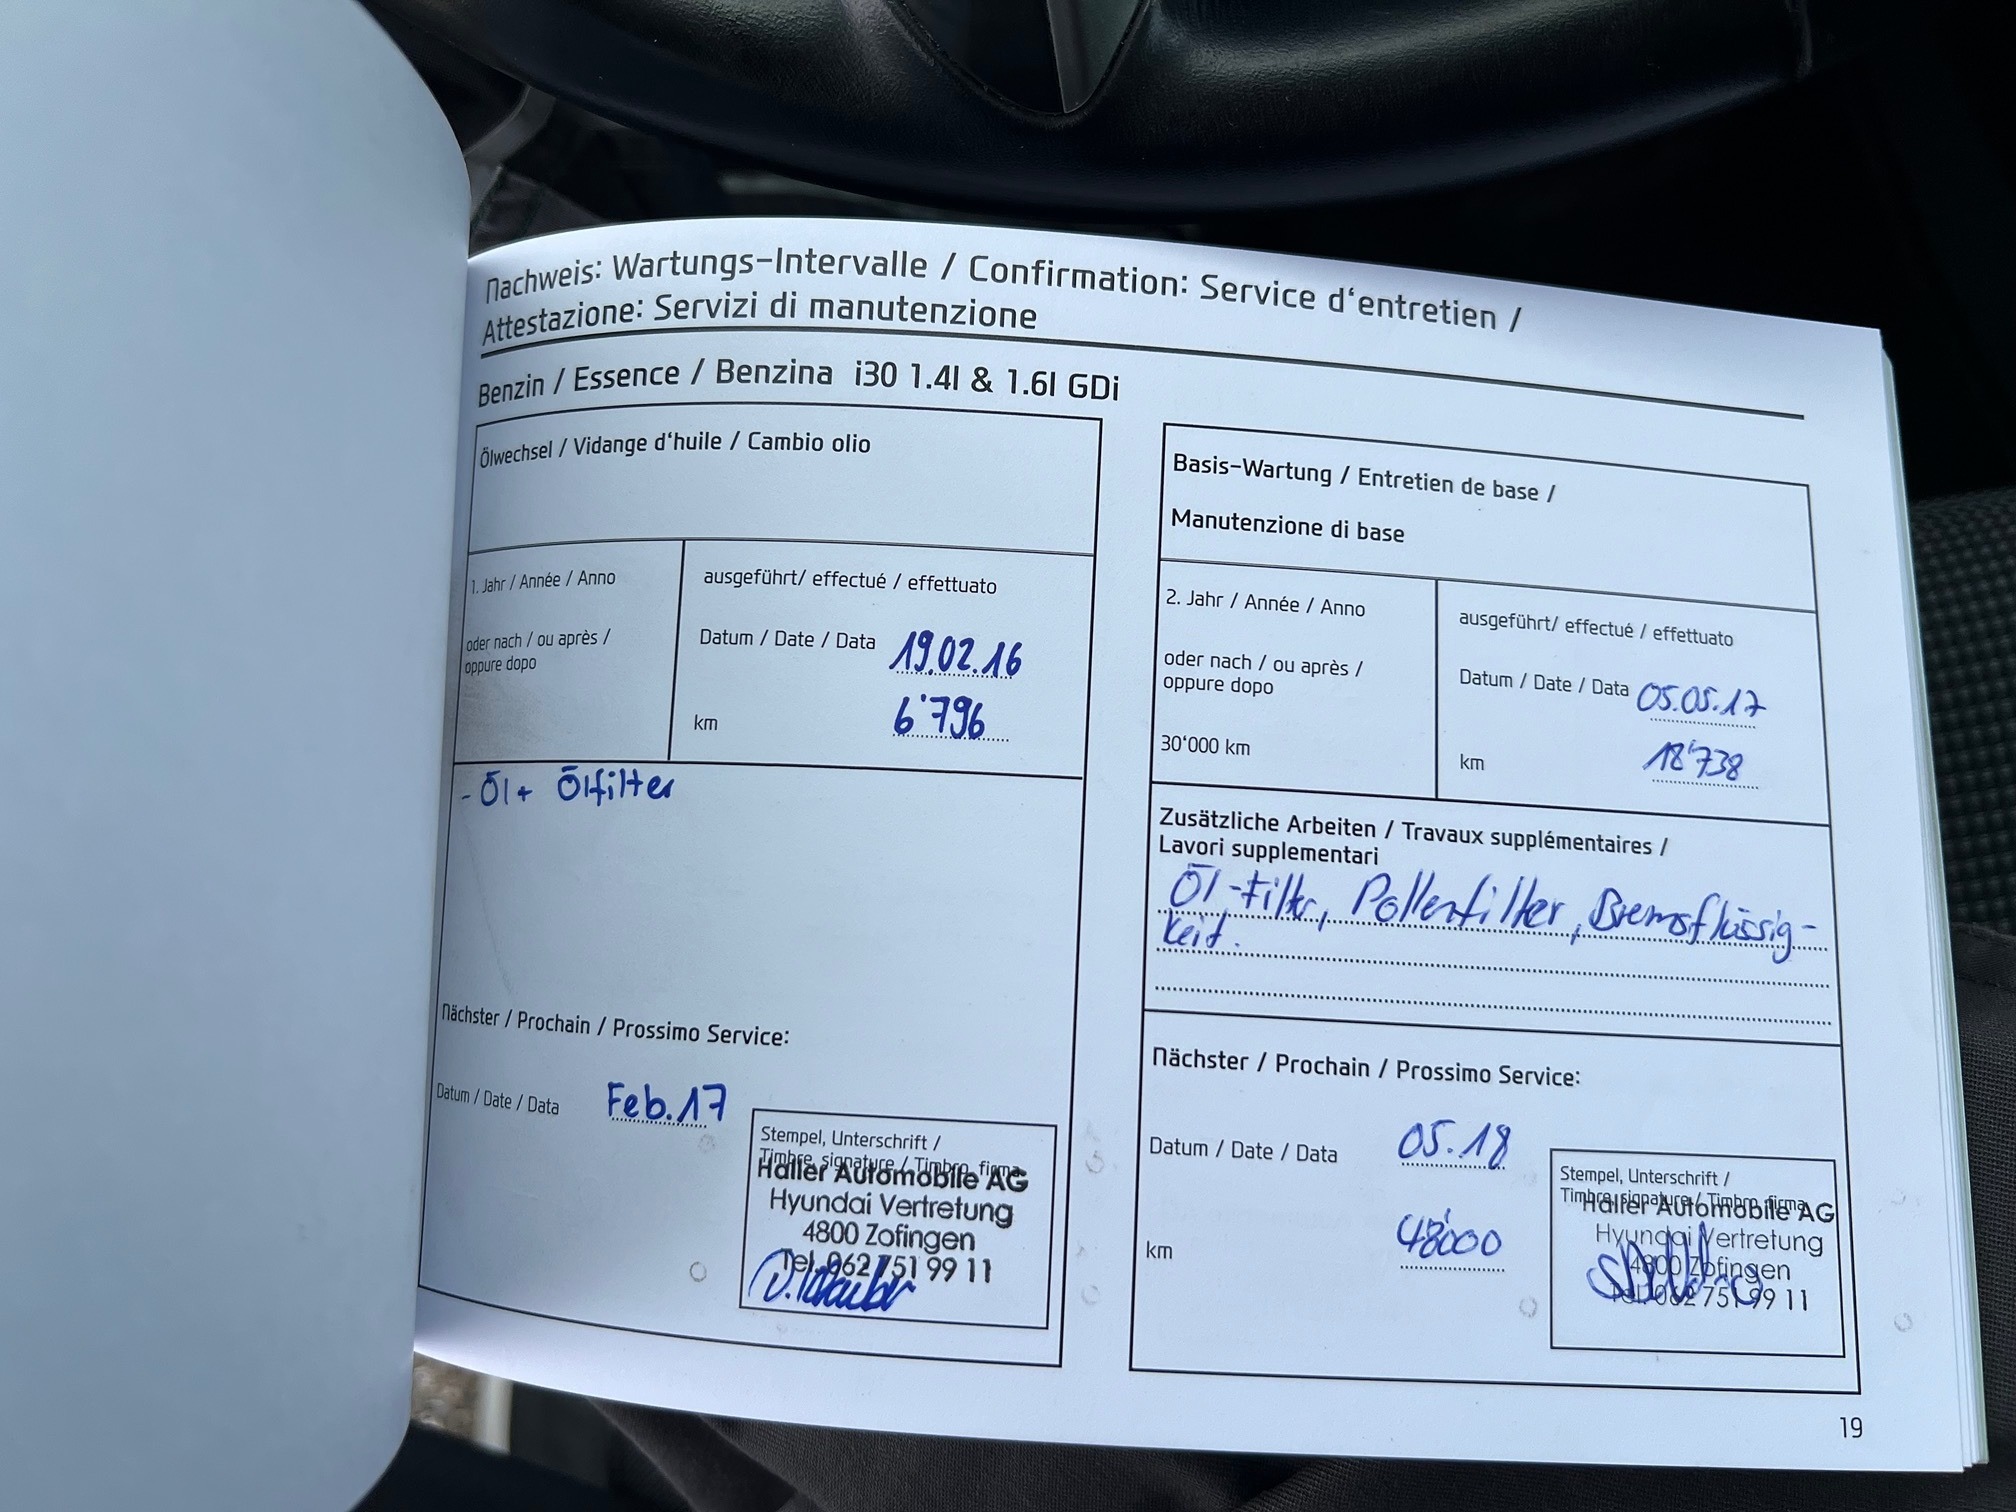 Nachweis: Wartungs-Intervalle / Confirmation: Service d'entretien /
Attestazione: Servizi di manutenzione
Benzin / Essence / Benzina i30 1.4l & 1.6l GDi
Ölwechsel / Vidange d'huile / Cambio olio
1. Jahr / Année / Anno
oder nach / ou après /
oppure dopo
ausgeführt/ effectué / effettuato
Datum / Date / Data 19.02.16
km 6'796
- Öl + Ölfilter
Nächster / Prochain / Prossimo Service:
Datum / Date / Data Feb.17
Stempel, Unterschrift /
Timbre, signature / Timbro, firma
Haller Automobile AG
Hyundai Vertretung
4800 Zofingen
Tel. 062 751 99 11
Basis-Wartung / Entretien de base /
Manutenzione di base
2. Jahr / Année / Anno
oder nach / ou après /
oppure dopo
30'000 km
ausgeführt/ effectué / effettuato
Datum / Date / Data 05.05.17
km 18'738
Zusätzliche Arbeiten / Travaux supplémentaires /
Lavori supplementari
Öl-Filter, Pollenfilter, Bremsflüssig-
keit.
Nächster / Prochain / Prossimo Service:
Datum / Date / Data 05.18
km 48'000
Stempel, Unterschrift /
Timbre, signature / Timbro, firma
Haller Automobile AG
Hyundai Vertretung
4800 Zofingen
Tel. 062 751 99 11
19